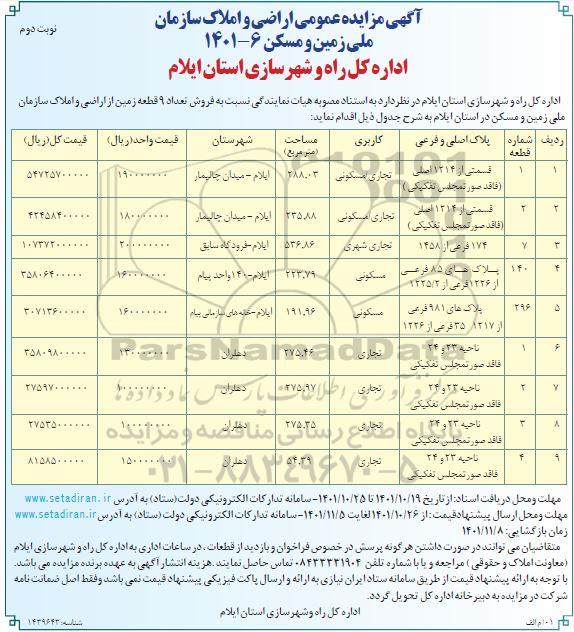 آگهی مزایده عمومی اراضی و املاک سازمان
ملی زمین و مسکن ۶-۱۴۰۱
نوبت دوم
اداره کل راه و شهرسازی استان ایلام
اداره کل راه و شهرسازی استان ایلام در نظر دارد به استناد مصوبه هیات نمایندگی نسبت به فروش تعداد ۹ قطعه زمین از اراضی و املاک سازمان
ملی زمین و مسکن در استان ایلام به شرح جدول ذیل اقدام نماید:
ردیف شماره قطعه پلاک اصلی و فرعی کاربری مساحت (متر مربع) شهرستان قیمت واحد(ریال) قیمت کل(ریال)
۱ ۱ قسمتی از ۱۲۱۴ اصلی (فاقد صورتمجلس تفکیکی) تجاری مسکونی ۲۸۸.۰۳ ایلام - میدان چالیمار ۱۹۰۰۰۰۰۰۰ ۵۴۷۲۵۷۰۰۰۰۰
۲ ۲ قسمتی از ۱۲۱۴ اصلی (فاقد صورتمجلس تفکیکی) تجاری مسکونی ۲۳۵.۸۸ ایلام - میدان چالیمار ۱۸۰۰۰۰۰۰۰ ۴۲۴۵۸۴۰۰۰۰۰
۳ ۷ ۱۷۴ فرعی از ۱۴۵۸ تجاری شهری ۵۳۶.۸۶ ایلام-فرودگاه سابق ۲۰۰۰۰۰۰۰۰ ۱۰۷۳۷۲۰۰۰۰۰۰
۴ ۱۴۰ پلاک های ۸۵ فرعی از ۱۲۲۶ فرعی از ۱۲۲۵/۲ مسکونی ۲۲۳.۷۹ ایلام-۱۴۰ واحد پیام ۱۶۰۰۰۰۰۰۰ ۳۵۸۰۶۴۰۰۰۰۰
۵ ۲۹۶ پلاک های ۹۸۱ فرعی از ۱۲۱۷ ۳۵ فرعی از ۱۲۲۶ مسکونی ۱۹۱.۹۶ ایلام-خانه های سازمانی پیام ۱۶۰۰۰۰۰۰۰ ۳۰۷۱۳۶۰۰۰۰۰
۶ ۱ ناحیه ۲۳ و ۲۴ فاقد صورتمجلس تفکیکی تجاری ۲۷۵.۴۶ دهلران ۱۳۰۰۰۰۰۰۰ ۳۵۸۰۹۸۰۰۰۰۰
۷ ۲ ناحیه ۲۳ و ۲۴ فاقد صورتمجلس تفکیکی تجاری ۲۷۵.۹۷ دهلران ۱۰۰۰۰۰۰۰۰ ۲۷۵۹۷۰۰۰۰۰۰
۸ ۳ ناحیه ۲۳ و ۲۴ فاقد صورتمجلس تفکیکی تجاری ۲۷۵.۳۵ دهلران ۱۰۰۰۰۰۰۰۰ ۲۷۵۳۵۰۰۰۰۰۰
۹ ۴ ناحیه ۲۳ و ۲۴ فاقد صورتمجلس تفکیکی تجاری ۵۴.۳۹ دهلران ۱۵۰۰۰۰۰۰۰ ۸۱۵۸۵۰۰۰۰۰
ParsNamadData
فرآوری اطلاعات پارس نماد داده ها
پایگاه اطلاع رسانی مناقصه و مزایده
۰۲۱-۸۸۳۴۹۶۷۰-۵
مهلت و محل دریافت اسناد: از تاریخ ۱۴۰۱/۱۰/۱۹ تا ۱۴۰۱/۱۰/۲۵-سامانه تدارکات الکترونیکی دولت (ستاد) به آدرس www.setadiran.ir
مهلت و محل ارسال پیشنهاد قیمت: از ۱۴۰۱/۱۰/۲۶ لغایت ۱۴۰۱/۱۱/۵-سامانه تدارکات الکترونیکی دولت(ستاد) به آدرس www.setadiran.ir
زمان بازگشایی: ۱۴۰۱/۱۱/۸
متقاضیان می توانند در صورت داشتن هرگونه پرسش در خصوص فراخوان و بازدید از قطعات، در ساعات اداری به اداره کل راه و شهرسازی ایلام
(معاونت املاک و حقوقی) مراجعه و یا با شماره تلفن ۰۸۴۳۳۳۳۱۹۰۴ تماس حاصل نمایند .هزینه انتشار آگهی به عهده برنده مزایده می باشد.
با توجه به ارائه پیشنهاد قیمت از طریق سامانه ستاد ایران نیازی به ارائه و ارسال پاکت فیزیکی پیشنهاد قیمت نمی باشد وفقط اصل ضمانت نامه
شرکت در مزایده به دبیرخانه اداره کل تحویل گردد.
اداره کل راه وشهرسازی استان ایلام
۱۰۱ م الف
شناسه: ۱۴۳۹۶۴۳